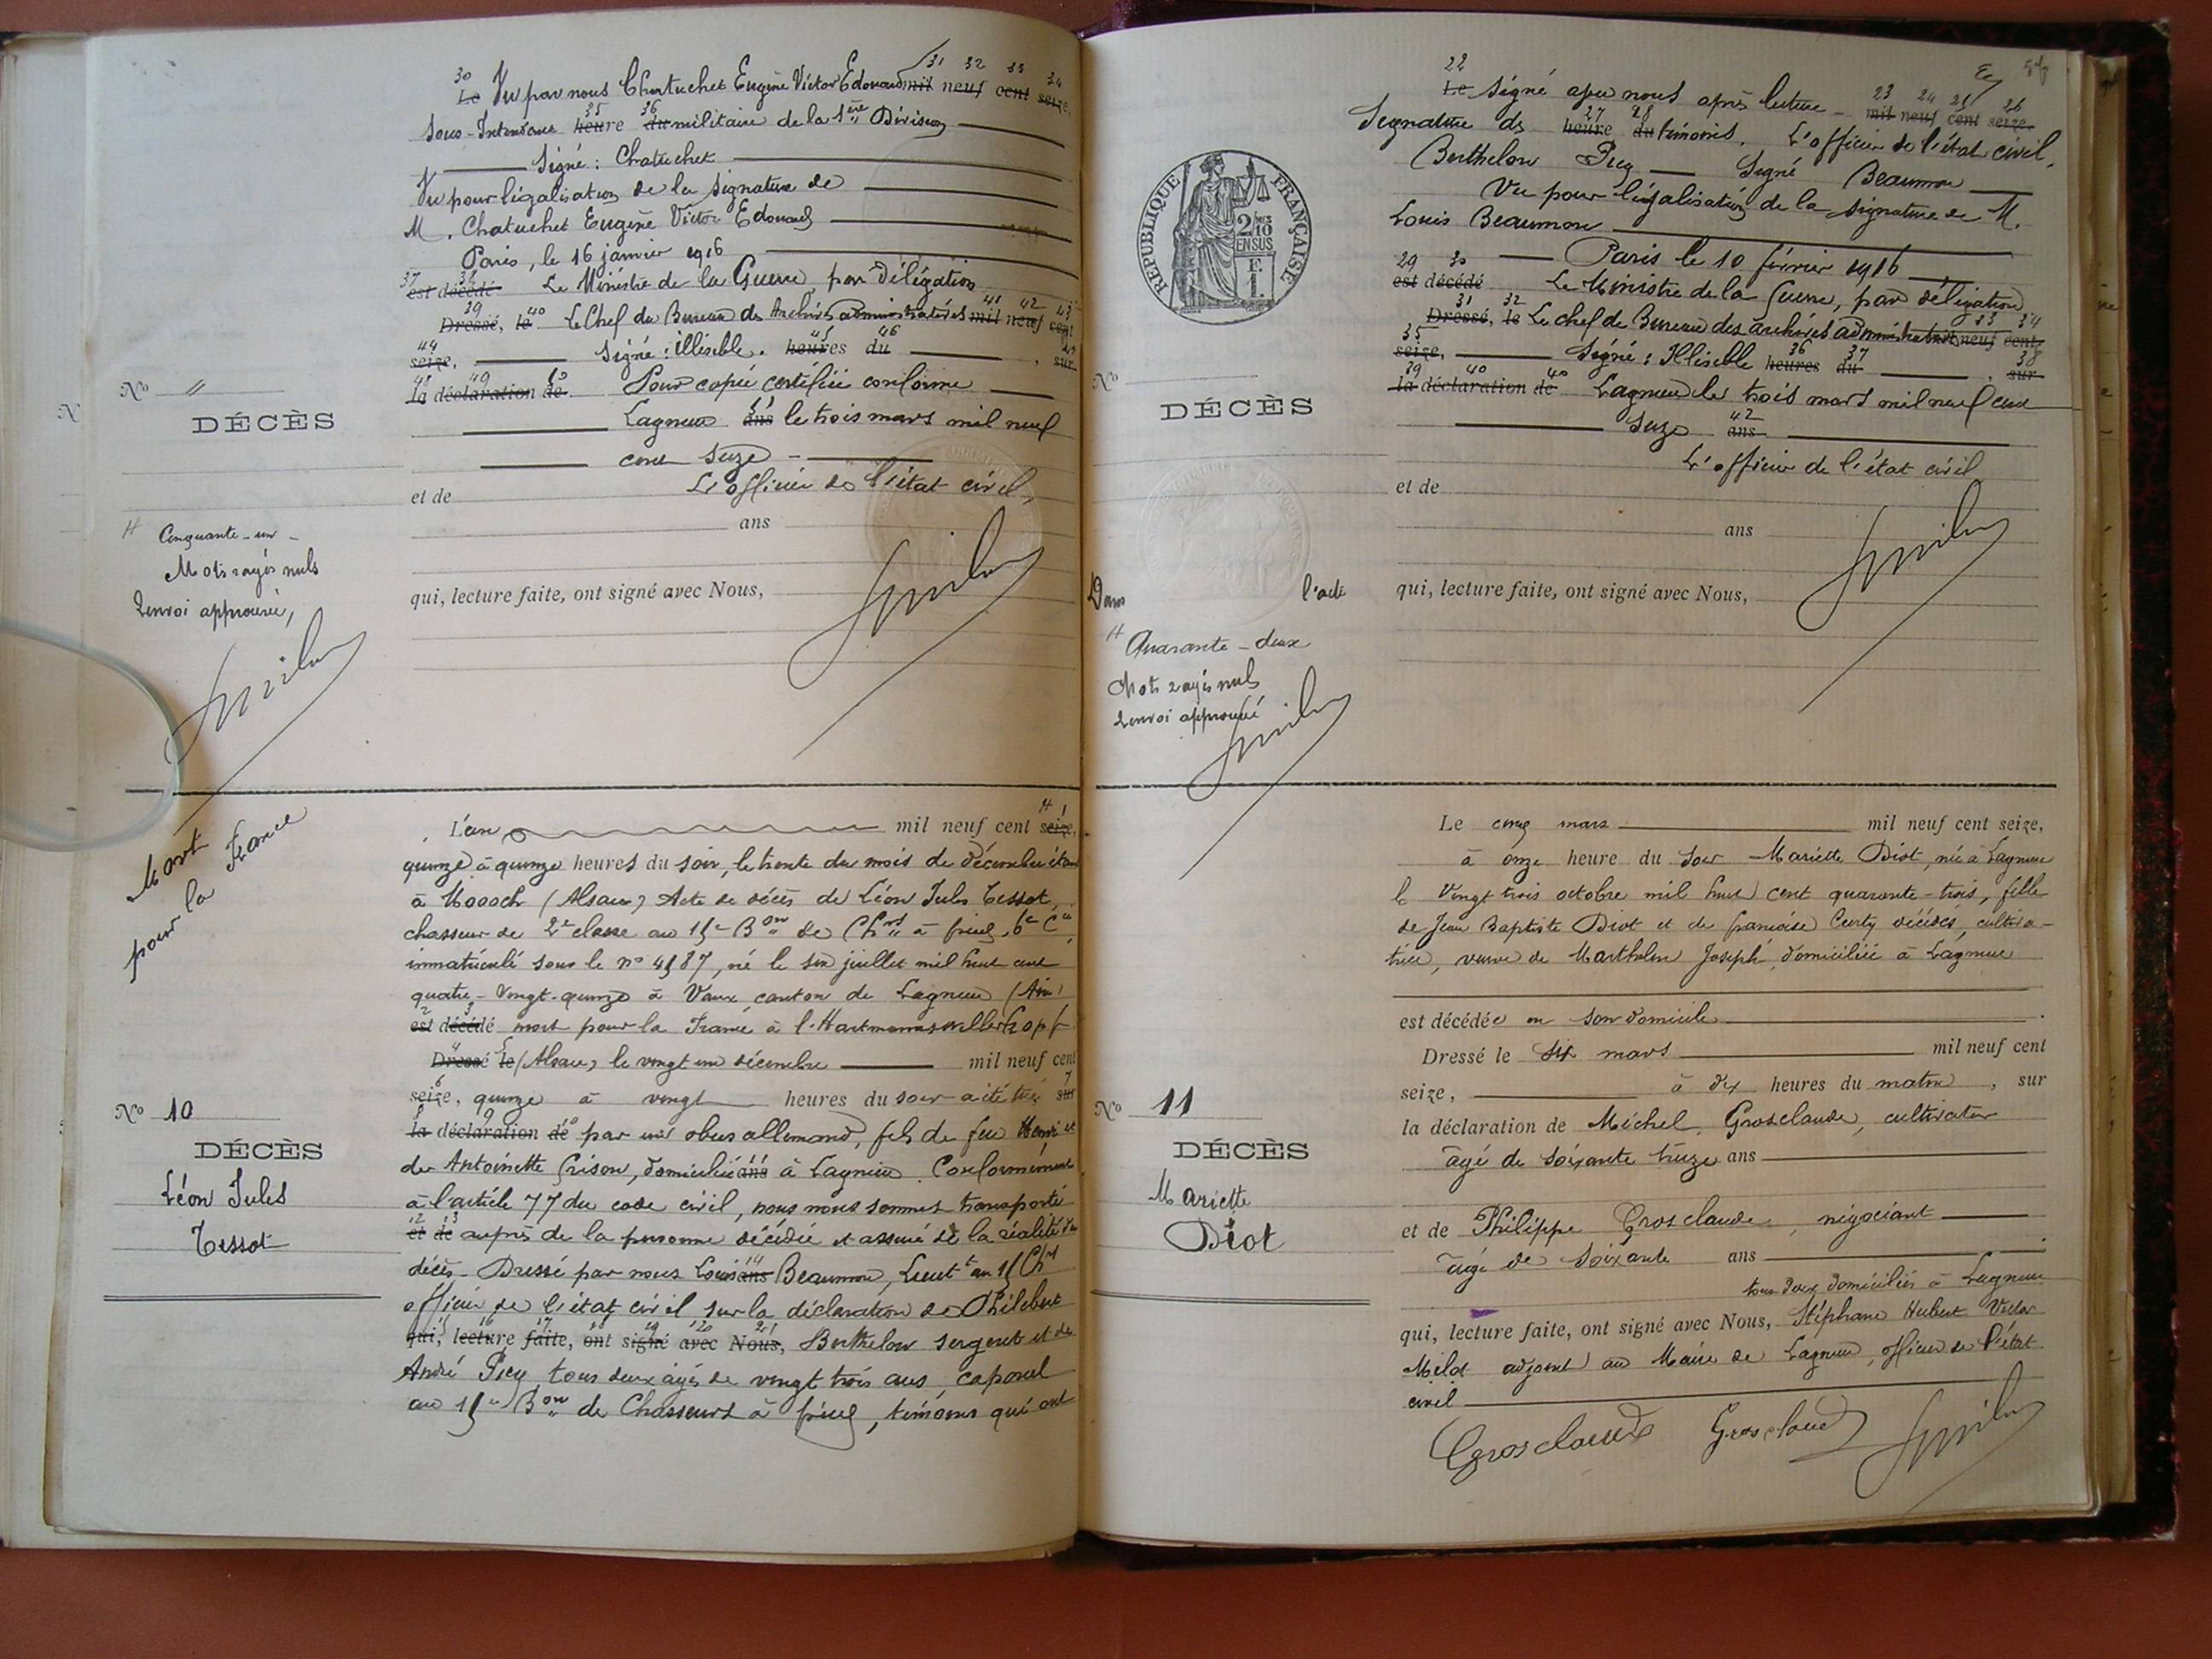 30 31 32 33 34
Le Vu par nous Chatuchet Eugène Victor Edouard mil neuf cent seize,
35 36
Sous-Intendant heure du militaire de la 1ère Division
Signé : Chatuchet
Vu pour légalisation de la signature de
M. Chatuchet Eugène Victor Edouard
Paris, le 16 janvier 1916
37 38
est décédé Le Ministre de la Guerre, par délégation
39 40 41 42 43
Dressé, le Le Chef du Bureau des Archives administratives mil neuf cent
44 45 46 47
seize, Signé : illisible. heures du , sur
48 49 50
la déclaration de Pour copie certifiée conforme
51
Lagnieu ans le trois mars mil neuf
cent seize
L'officier de l'état civil,
et de
ans
qui, lecture faite, ont signé avec Nous,
No //
DÉCÈS
Cinquante-un
Mots rayés nuls
Renvoi approuvé,
Mort
pour la France
No 10
DÉCÈS
Léon Jules
Tessot
L'an mil neuf cent seize,
quinze à quinze heures du soir, le trente du mois de décembre étant
à Moosch (Alsace) Acte de décès de Léon Jules Tessot,
chasseur de 2e classe au 15e Bon de Chrs à pied, 6e Cie,
immatriculé sous le no 4587, né le six juillet mil huit cent
quatre-vingt-quinze à Vaux, canton de Lagnieu (Ain)
2 3
est décédé mort pour la France à l'Hartmannswillerkopf
4 5
Dressé le (Alsace) le vingt un décembre mil neuf cent
6 7
seize, quinze à vingt heures du soir a été tué sur
8 9 10
la déclaration de par un obus allemand, fils de feu Henri et
11
de Antoinette Grison, domicilié ans à Lagnieu. Conformément
à l'article 77 du code civil, nous nous sommes transporté
12 13
et de auprès de la personne décédée et assuré de la réalité du
14
décès. Dressé par nous Louis ans Beaumon, Lieutt au 15 Chrs
officier de l'état civil sur la déclaration de Philibert
15 16 17 18 19 20 21
qui, lecture faite, ont signé avec Nous, Berthelon sergent et de
André Picy, tous deux âgés de vingt trois ans, caporal
au 15e Bon de Chasseurs à pied, témoins qui ont
22 23 24 25 26
Le Signé avec nous après lecture mil neuf cent seize.
27 28
Signature des heure du témoins. L'officier de l'état civil,
Berthelon Picy Signé Beaumon
Vu pour légalisation de la signature de M.
Louis Beaumon
Paris le 10 février 1916
29 30
est décédé Le Ministre de la Guerre, par délégation
31 32 33 34
Dressé, le Le chef de Bureau des archives administratives neuf cent
35 36 37 38
seize, Signé : Illisible heures du , sur
39 40 40
la déclaration de Lagnieu le trois mars mil neuf cent
42
seize ans
L'officier de l'état civil
et de
ans
qui, lecture faite, ont signé avec Nous,
RÉPUBLIQUE FRANÇAISE
2 10
EN SUS
F.
1.
No
DÉCÈS
Dans l'acte
Quarante-deux
Mots rayés nuls
Renvoi approuvé
No 11
DÉCÈS
Mariette
Diot
Le cinq mars mil neuf cent seize,
à onze heure du soir Mariette Diot, née à Lagnieu
le vingt trois octobre mil huit cent quarante-trois, fille
de Jean Baptiste Diot et de françoise Curty décédés, cultiva-
trice, veuve de Marthelin Joseph, domiciliée à Lagnieu
est décédée en son domicile
Dressé le six mars mil neuf cent
seize, à dix heures du matin, sur
la déclaration de Michel Grosclaude, cultivateur
âgé de soixante treize ans
et de Philippe Grosclaude, négociant
âgé de soixante ans
tous deux domiciliés à Lagnieu
qui, lecture faite, ont signé avec Nous, Stéphane Hubert Victor
Milat adjoint au Maire de Lagnieu, officier de l'état
civil
Grosclaude Grosclaude